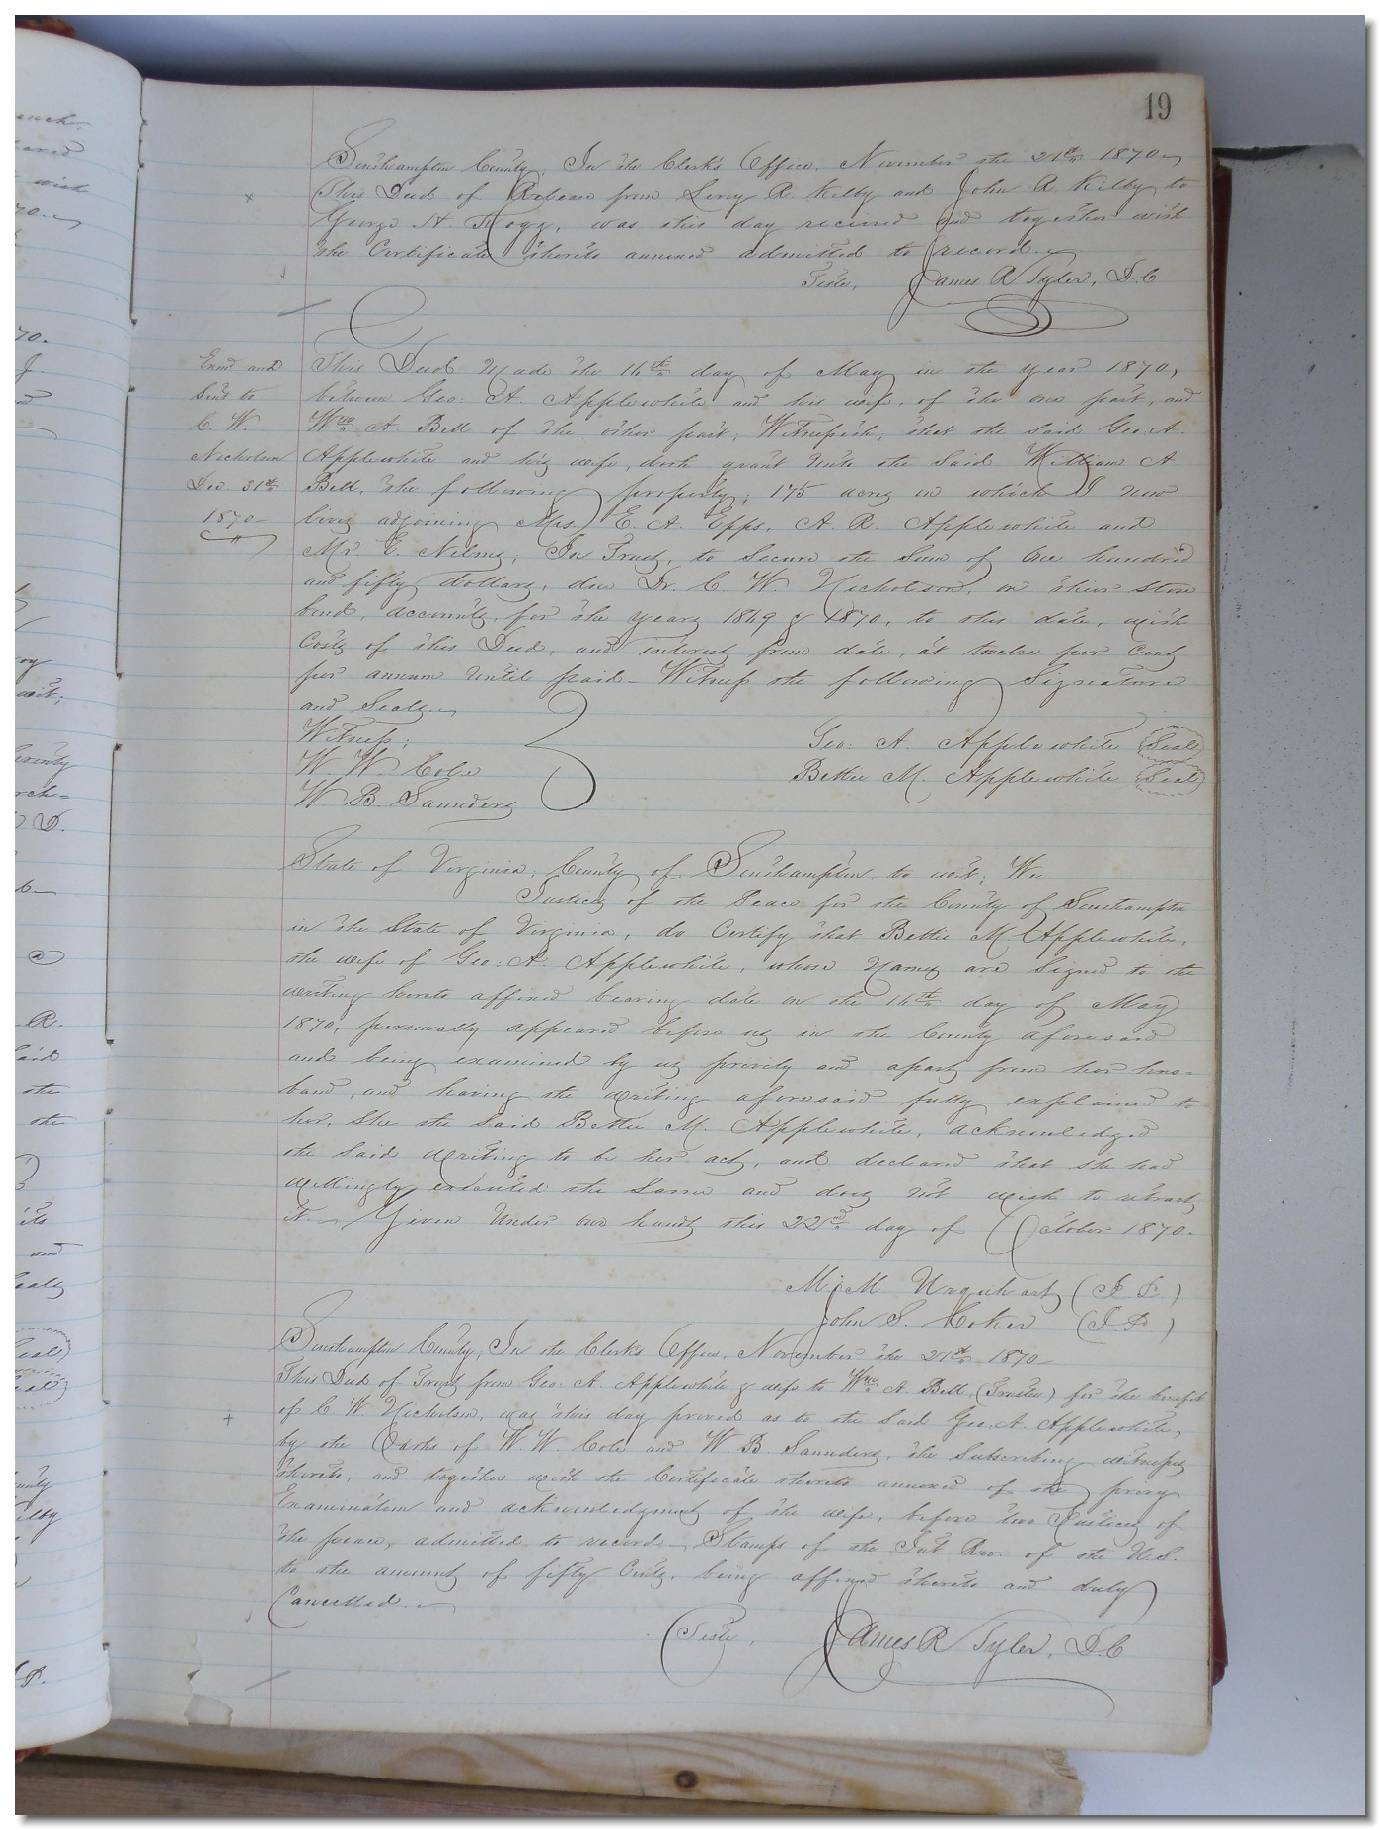 19
Southampton County, In the Clerk's Office, November the 21st 1870
This Deed of Release from Leroy R. Kilby and John R. Kilby to
George H. was this day received and together with
the Certificate thereto annexed admitted to record.
Teste, James R Tyler, D.C
Exmd and
Sent to
C. W.
Nicholson
Dec 31st
1870
This Deed Made the 14th day of May in the year 1870,
between Geo: A. Applewhite and his wife, of the one part, and
Wm A. Bell of the other part, Witnesseth, that the said Geo. A.
Applewhite and his wife, doth grant Unto the Said William A
Bell, the following property; 175 acres on which I now
live, adjoining Mrs E. A. Epps, A. R. Applewhite and
Mr E. Nelms; In Trust, to Secure the Sum of One hundred
and fifty dollars, due Dr. C. W. Nicholson, on their store
bond, accounts, for the years 1869 & 1870, to this date, with
Costs of this Deed, and interest from date, at twelve per Cent
per annum Until paid - Witness the following Signature
and Seals.
Witness;
W W. Cobb
W B. Saunders
Geo: A. Applewhite (Seal)
Bettie M. Applewhite (Seal)
State of Virginia, County of Southampton to wit; We
Justices of the Peace for the County of Southampton
in the State of Virginia, do Certify that Bettie M. Applewhite,
the wife of Geo: A. Applewhite, whose Names are Signed to the
writing hereto affixed bearing date on the 14th day of May
1870, personally appeared before us in the County aforesaid
and being examined by us privily and apart from her hus=
band, and having the writing aforesaid fully explained to
her, She the Said Bettie M. Applewhite, acknowledged
the Said writing to be her act, and declared that she had
willingly executed the Same and does not wish to retract
it. Given Under our hands this 22nd day of October 1870.
M. M Urquhart (J P.)
John S. Coker (J. P.)
Southampton County, In the Clerk's Office, November the 21st 1870
This Deed of Trust from Geo: A. Applewhite & wife to Wm A. Bell (Trustee) for the benefit
of C. W. Nicholson, was this day proved as to the Said Geo. A. Applewhite,
by the Oaths of W. W. Cobb and W B Saunders, the Subscribing witnesses
thereto, and together with the Certificate thereto annexed of the privy
Examination and acknowledgment of the wife, before two Justices of
the peace, admitted to record - Stamps of the Int Rev. of the U.S.
to the amount of fifty Cents, being affixed thereto and duly
Cancelled.
Teste, James R Tyler, D.C